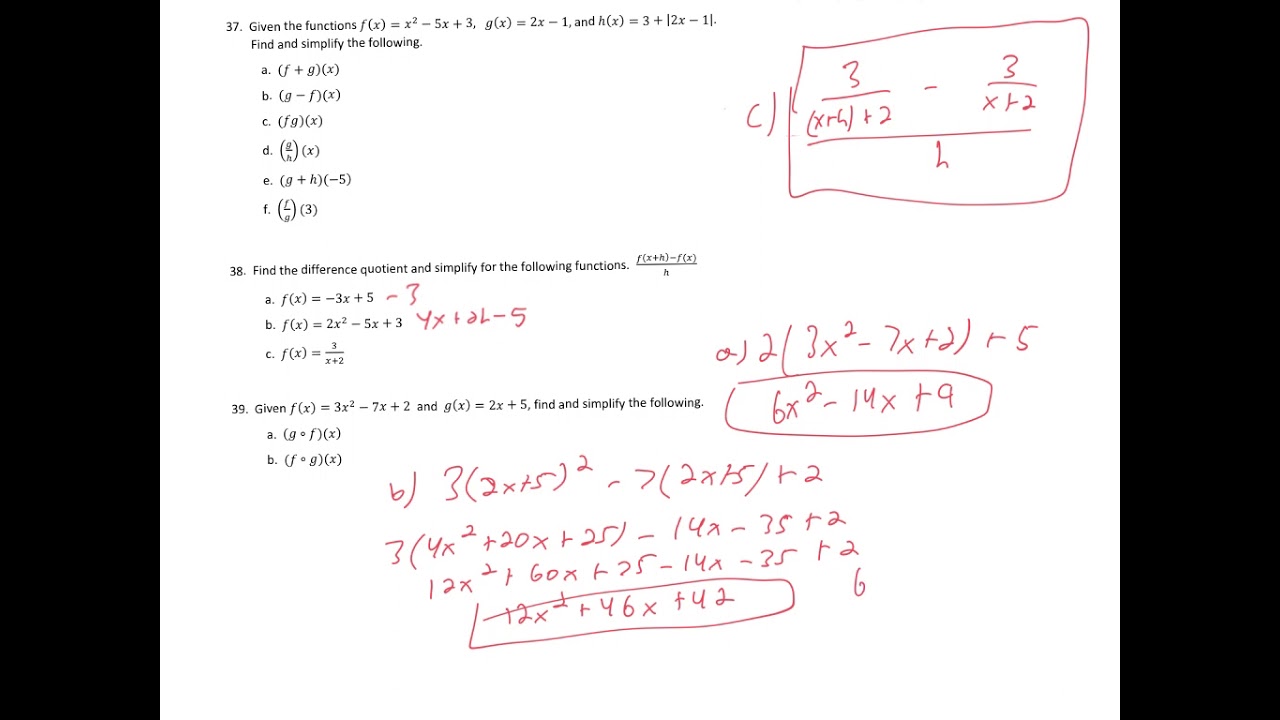 37. Given the functions f(x) = x² − 5x + 3, g(x) = 2x − 1, and h(x) = 3 + |2x − 1|.
Find and simplify the following.
a. (f + g)(x)
b. (g − f)(x)
c. (fg)(x)
d. (g/h)(x)
e. (g + h)(−5)
f. (f/g)(3)
c) (3/((x+h)+2) − 3/(x+2))/h
38. Find the difference quotient and simplify for the following functions. (f(x+h)−f(x))/h
a. f(x) = −3x + 5 −3
b. f(x) = 2x² − 5x + 3 4x+2h−5
c. f(x) = 3/(x+2)
39. Given f(x) = 3x² − 7x + 2 and g(x) = 2x + 5, find and simplify the following.
a. (g ∘ f)(x)
b. (f ∘ g)(x)
a) 2(3x² − 7x+2) + 5
6x² − 14x + 9
b) 3(2x+5)² − 7(2x+5) + 2
3(4x² + 20x + 25) − 14x − 35 + 2
12x² + 60x + 75 − 14x − 35 + 2
12x² + 46x + 42
6